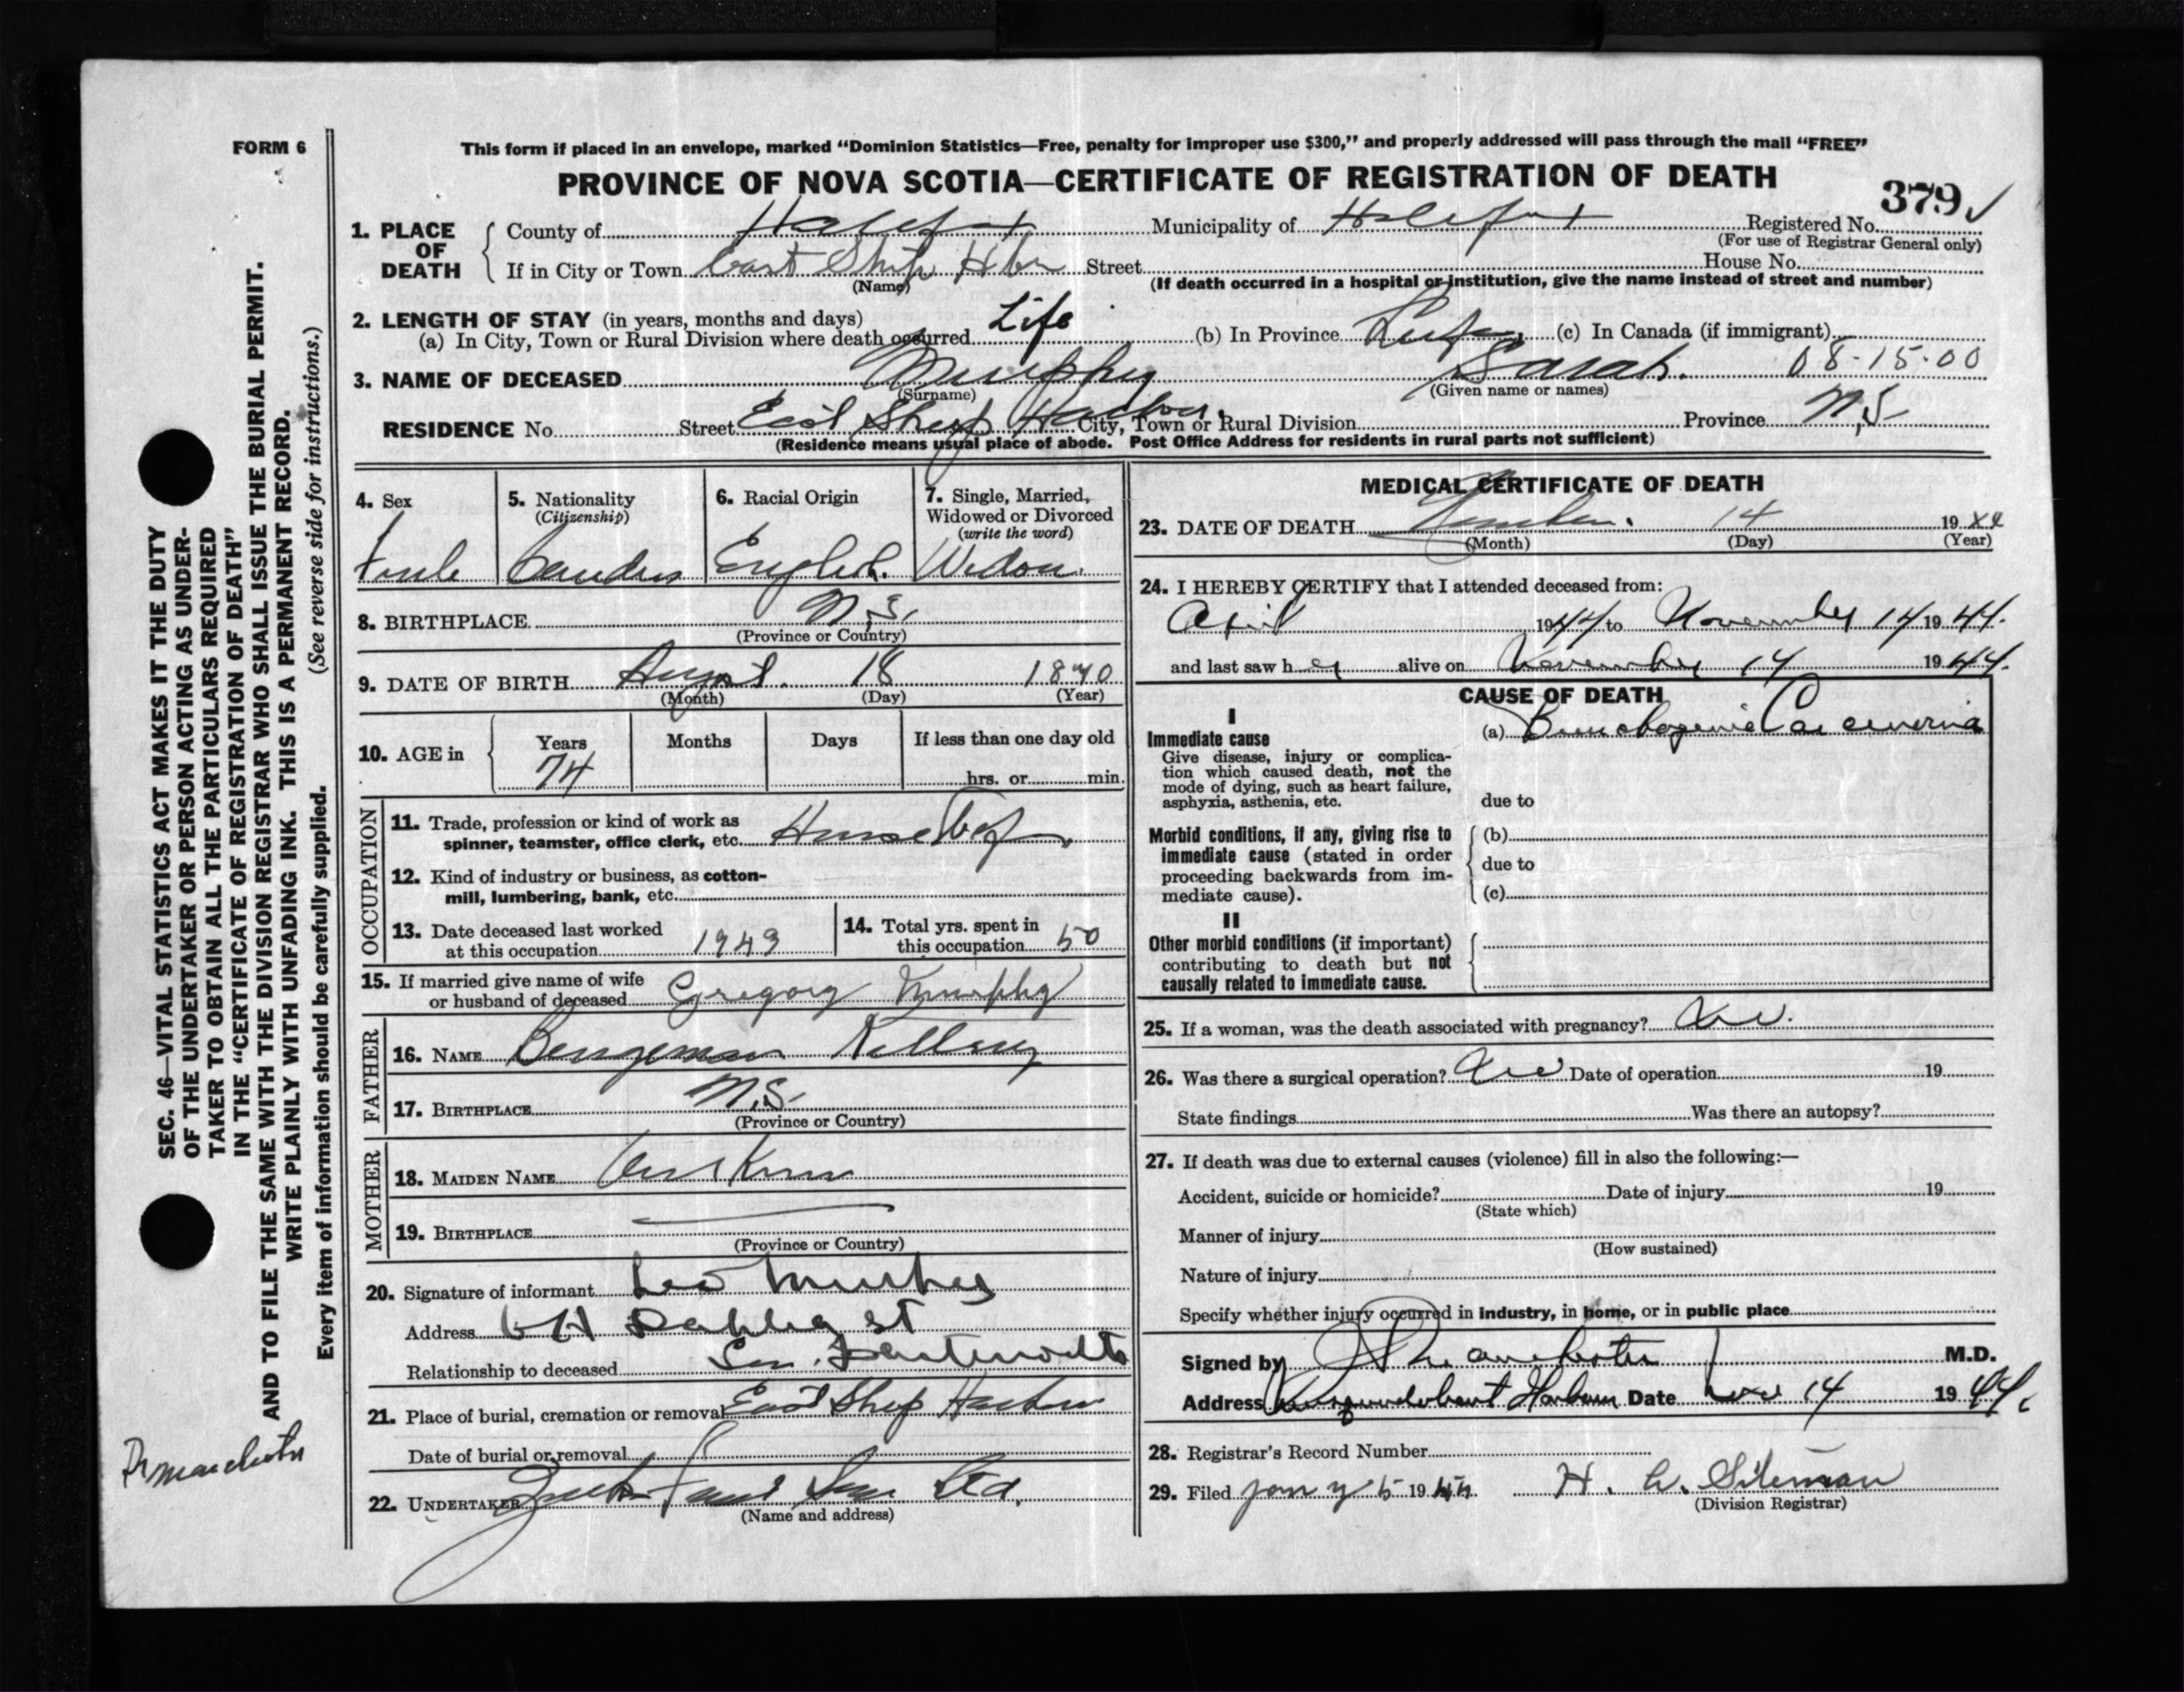 FORM 6
This form if placed in an envelope, marked "Dominion Statistics—Free, penalty for improper use $300," and properly addressed will pass through the mail "FREE"
PROVINCE OF NOVA SCOTIA—CERTIFICATE OF REGISTRATION OF DEATH
379 ✓
1. PLACE OF DEATH
County of Halifax Municipality of Halifax Registered No.
(For use of Registrar General only)
If in City or Town East Ship Hbr Street House No.
(Name) (If death occurred in a hospital or institution, give the name instead of street and number)
2. LENGTH OF STAY (in years, months and days)
(a) In City, Town or Rural Division where death occurred Life (b) In Province Life (c) In Canada (if immigrant)
3. NAME OF DECEASED Murphy Sarah. 08-15-00
(Surname) (Given name or names)
RESIDENCE No. Street East Ship Harbour, City, Town or Rural Division Province N.S
(Residence means usual place of abode. Post Office Address for residents in rural parts not sufficient)
4. Sex
5. Nationality
(Citizenship)
6. Racial Origin
7. Single, Married, Widowed or Divorced
(write the word)
English. Widow.
8. BIRTHPLACE N.S.
(Province or Country)
9. DATE OF BIRTH August. 18 1870
(Month) (Day) (Year)
10. AGE in
Years Months Days If less than one day old
74 hrs. or min.
OCCUPATION
11. Trade, profession or kind of work as
spinner, teamster, office clerk, etc.
12. Kind of industry or business, as cotton-
mill, lumbering, bank, etc.
13. Date deceased last worked
at this occupation 1943
14. Total yrs. spent in
this occupation 50
15. If married give name of wife
or husband of deceased Gregory Murphy
FATHER
16. NAME
17. BIRTHPLACE N.S.
(Province or Country)
MOTHER
18. MAIDEN NAME
19. BIRTHPLACE
(Province or Country)
20. Signature of informant Leo Murphy
Address St
Relationship to deceased Son. Dartmouth
21. Place of burial, cremation or removal East Ship Harbour
Date of burial or removal
22. UNDERTAKER and Son Ltd.
(Name and address)
MEDICAL CERTIFICATE OF DEATH
23. DATE OF DEATH 14 1944
(Month) (Day) (Year)
24. I HEREBY CERTIFY that I attended deceased from:
April 1944 to November 14 1944.
and last saw her alive on November 14 1944.
CAUSE OF DEATH
I
Immediate cause
Give disease, injury or complica-
tion which caused death, not the
mode of dying, such as heart failure,
asphyxia, asthenia, etc.
(a) Bronchogenic Carcinoma
due to
Morbid conditions, if any, giving rise to
immediate cause (stated in order
proceeding backwards from im-
mediate cause).
(b)
due to
(c)
II
Other morbid conditions (if important)
contributing to death but not
causally related to immediate cause.
25. If a woman, was the death associated with pregnancy? No.
26. Was there a surgical operation? No Date of operation 19
State findings Was there an autopsy?
27. If death was due to external causes (violence) fill in also the following:—
Accident, suicide or homicide? Date of injury 19
(State which)
Manner of injury
(How sustained)
Nature of injury
Specify whether injury occurred in industry, in home, or in public place
Signed by M.D.
Address Musquodoboit Harbour Date Nov 14 1944.
28. Registrar's Record Number
29. Filed 19 H. W. Siteman
(Division Registrar)
SEC. 46—VITAL STATISTICS ACT MAKES IT THE DUTY
OF THE UNDERTAKER OR PERSON ACTING AS UNDER-
TAKER TO OBTAIN ALL THE PARTICULARS REQUIRED
IN THE "CERTIFICATE OF REGISTRATION OF DEATH"
AND TO FILE THE SAME WITH THE DIVISION REGISTRAR WHO SHALL ISSUE THE BURIAL PERMIT.
WRITE PLAINLY WITH UNFADING INK. THIS IS A PERMANENT RECORD.
Every item of information should be carefully supplied. (See reverse side for instructions.)